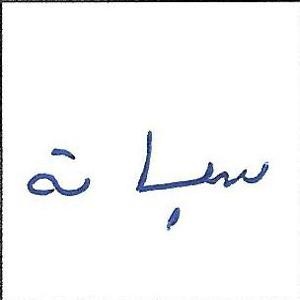 سبا ة